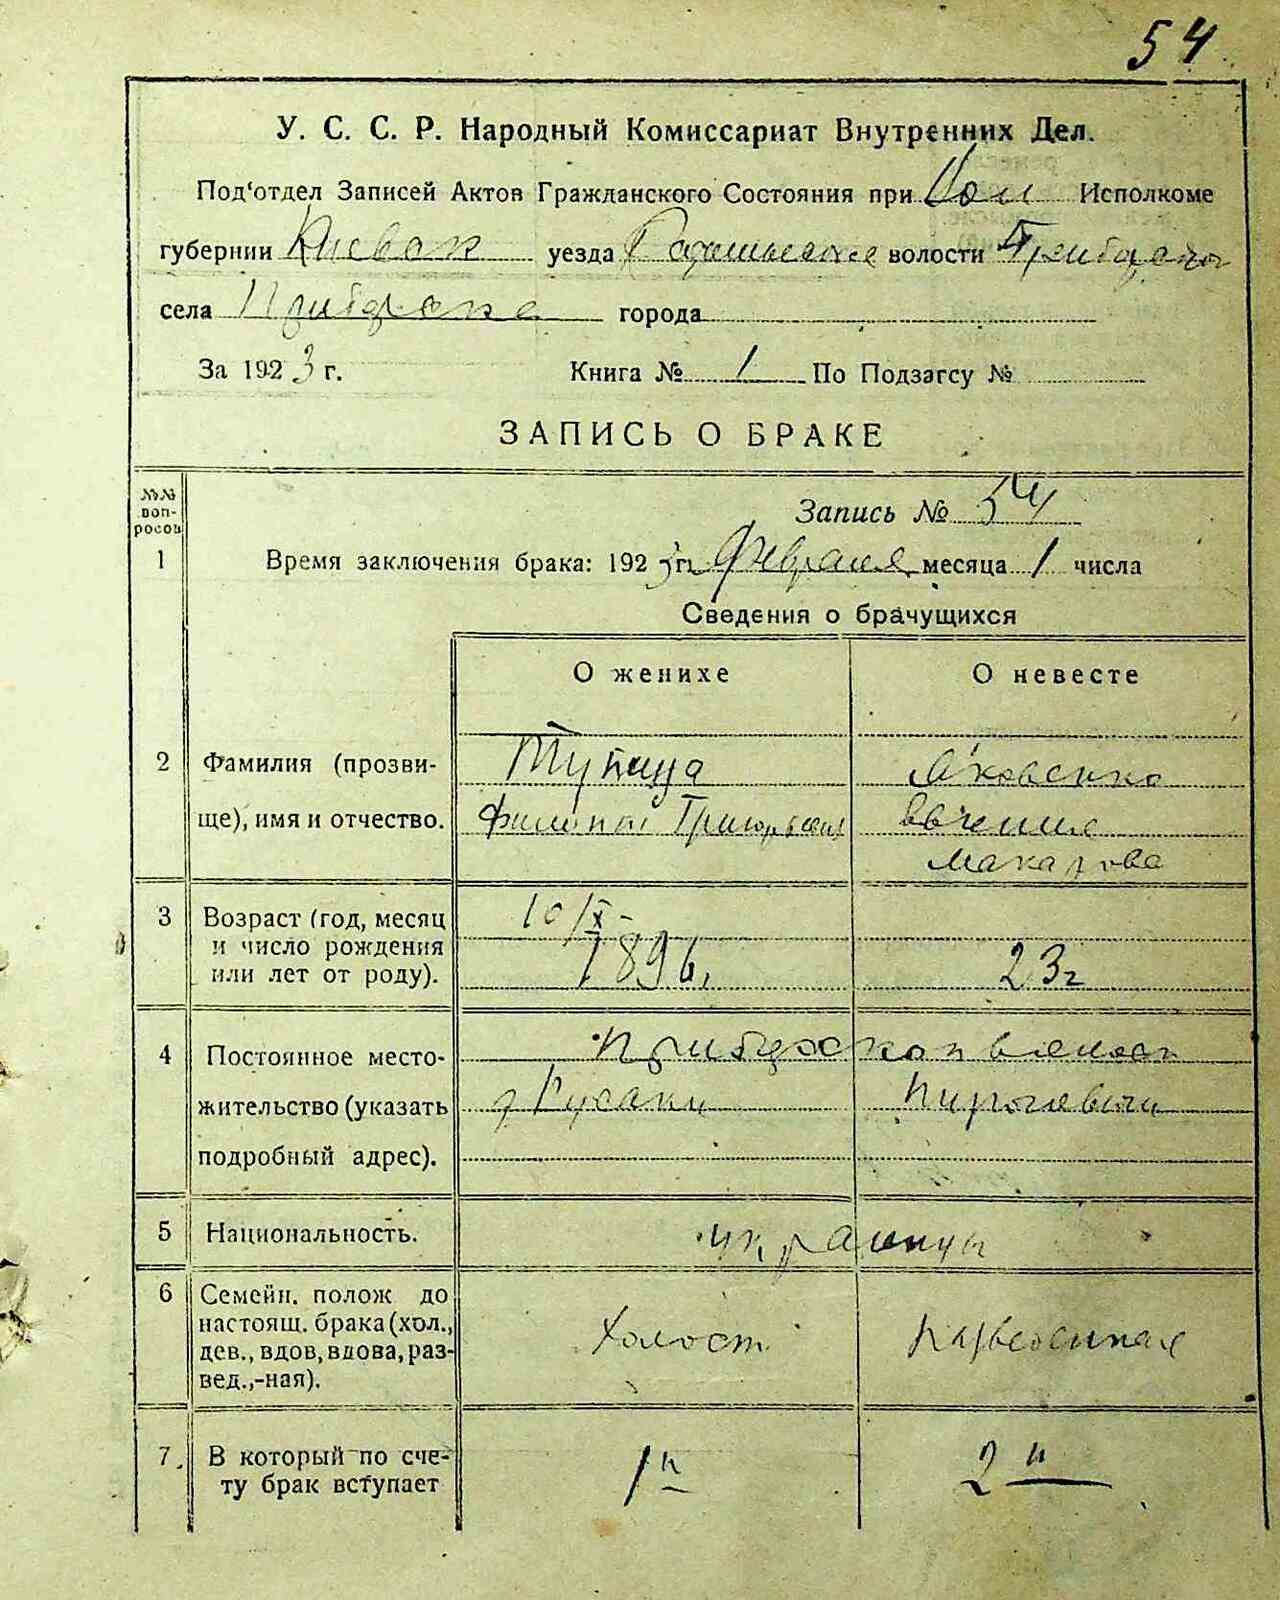 54
У. С. С. Р. Народный Комиссариат Внутренних Дел.
Под'отдел Записей Актов Гражданского Состояния при Вол Исполкоме
губернии Киевск уезда волости
села города
За 1923 г. Книга № 1 По Подзагсу №
ЗАПИСЬ О БРАКЕ
№№ вопросов
Запись № 54
1 Время заключения брака: 1923 г. Февраля месяца 1 числа
Сведения о брачущихся
О женихе О невесте
2 Фамилия (прозви- Тупица Яковенко
ще), имя и отчество. Филипп Григорьевич
Макарова
3 Возраст (год, месяц 10/X-
и число рождения 1896. 23 г
или лет от роду).
4 Постоянное место-
жительство (указать д Русаки Пироговичи
подробный адрес).
5 Национальность. украинцы
6 Семейн. полож до
настоящ. брака (хол., Холост Разведенная
дев., вдов, вдова, раз-
вед.,-ная).
7. В который по сче- 1й 2й
ту брак вступает